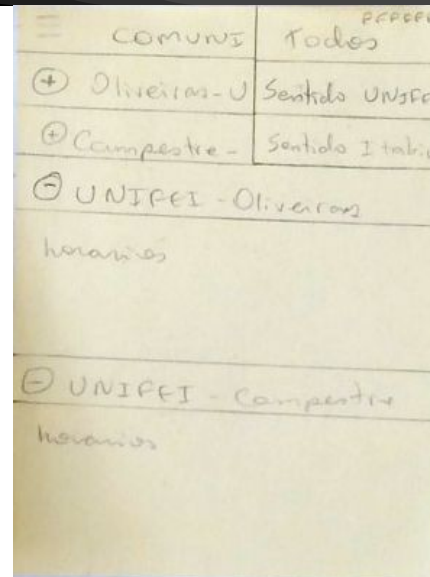 COMUNI Todos
⊕ Oliveiras-U Sentido UNIFE
⊕ Campestre - Sentido Itabi
⊖ UNIFEI - Oliveiras
horarios
⊖ UNIFEI - Campestre
horarios